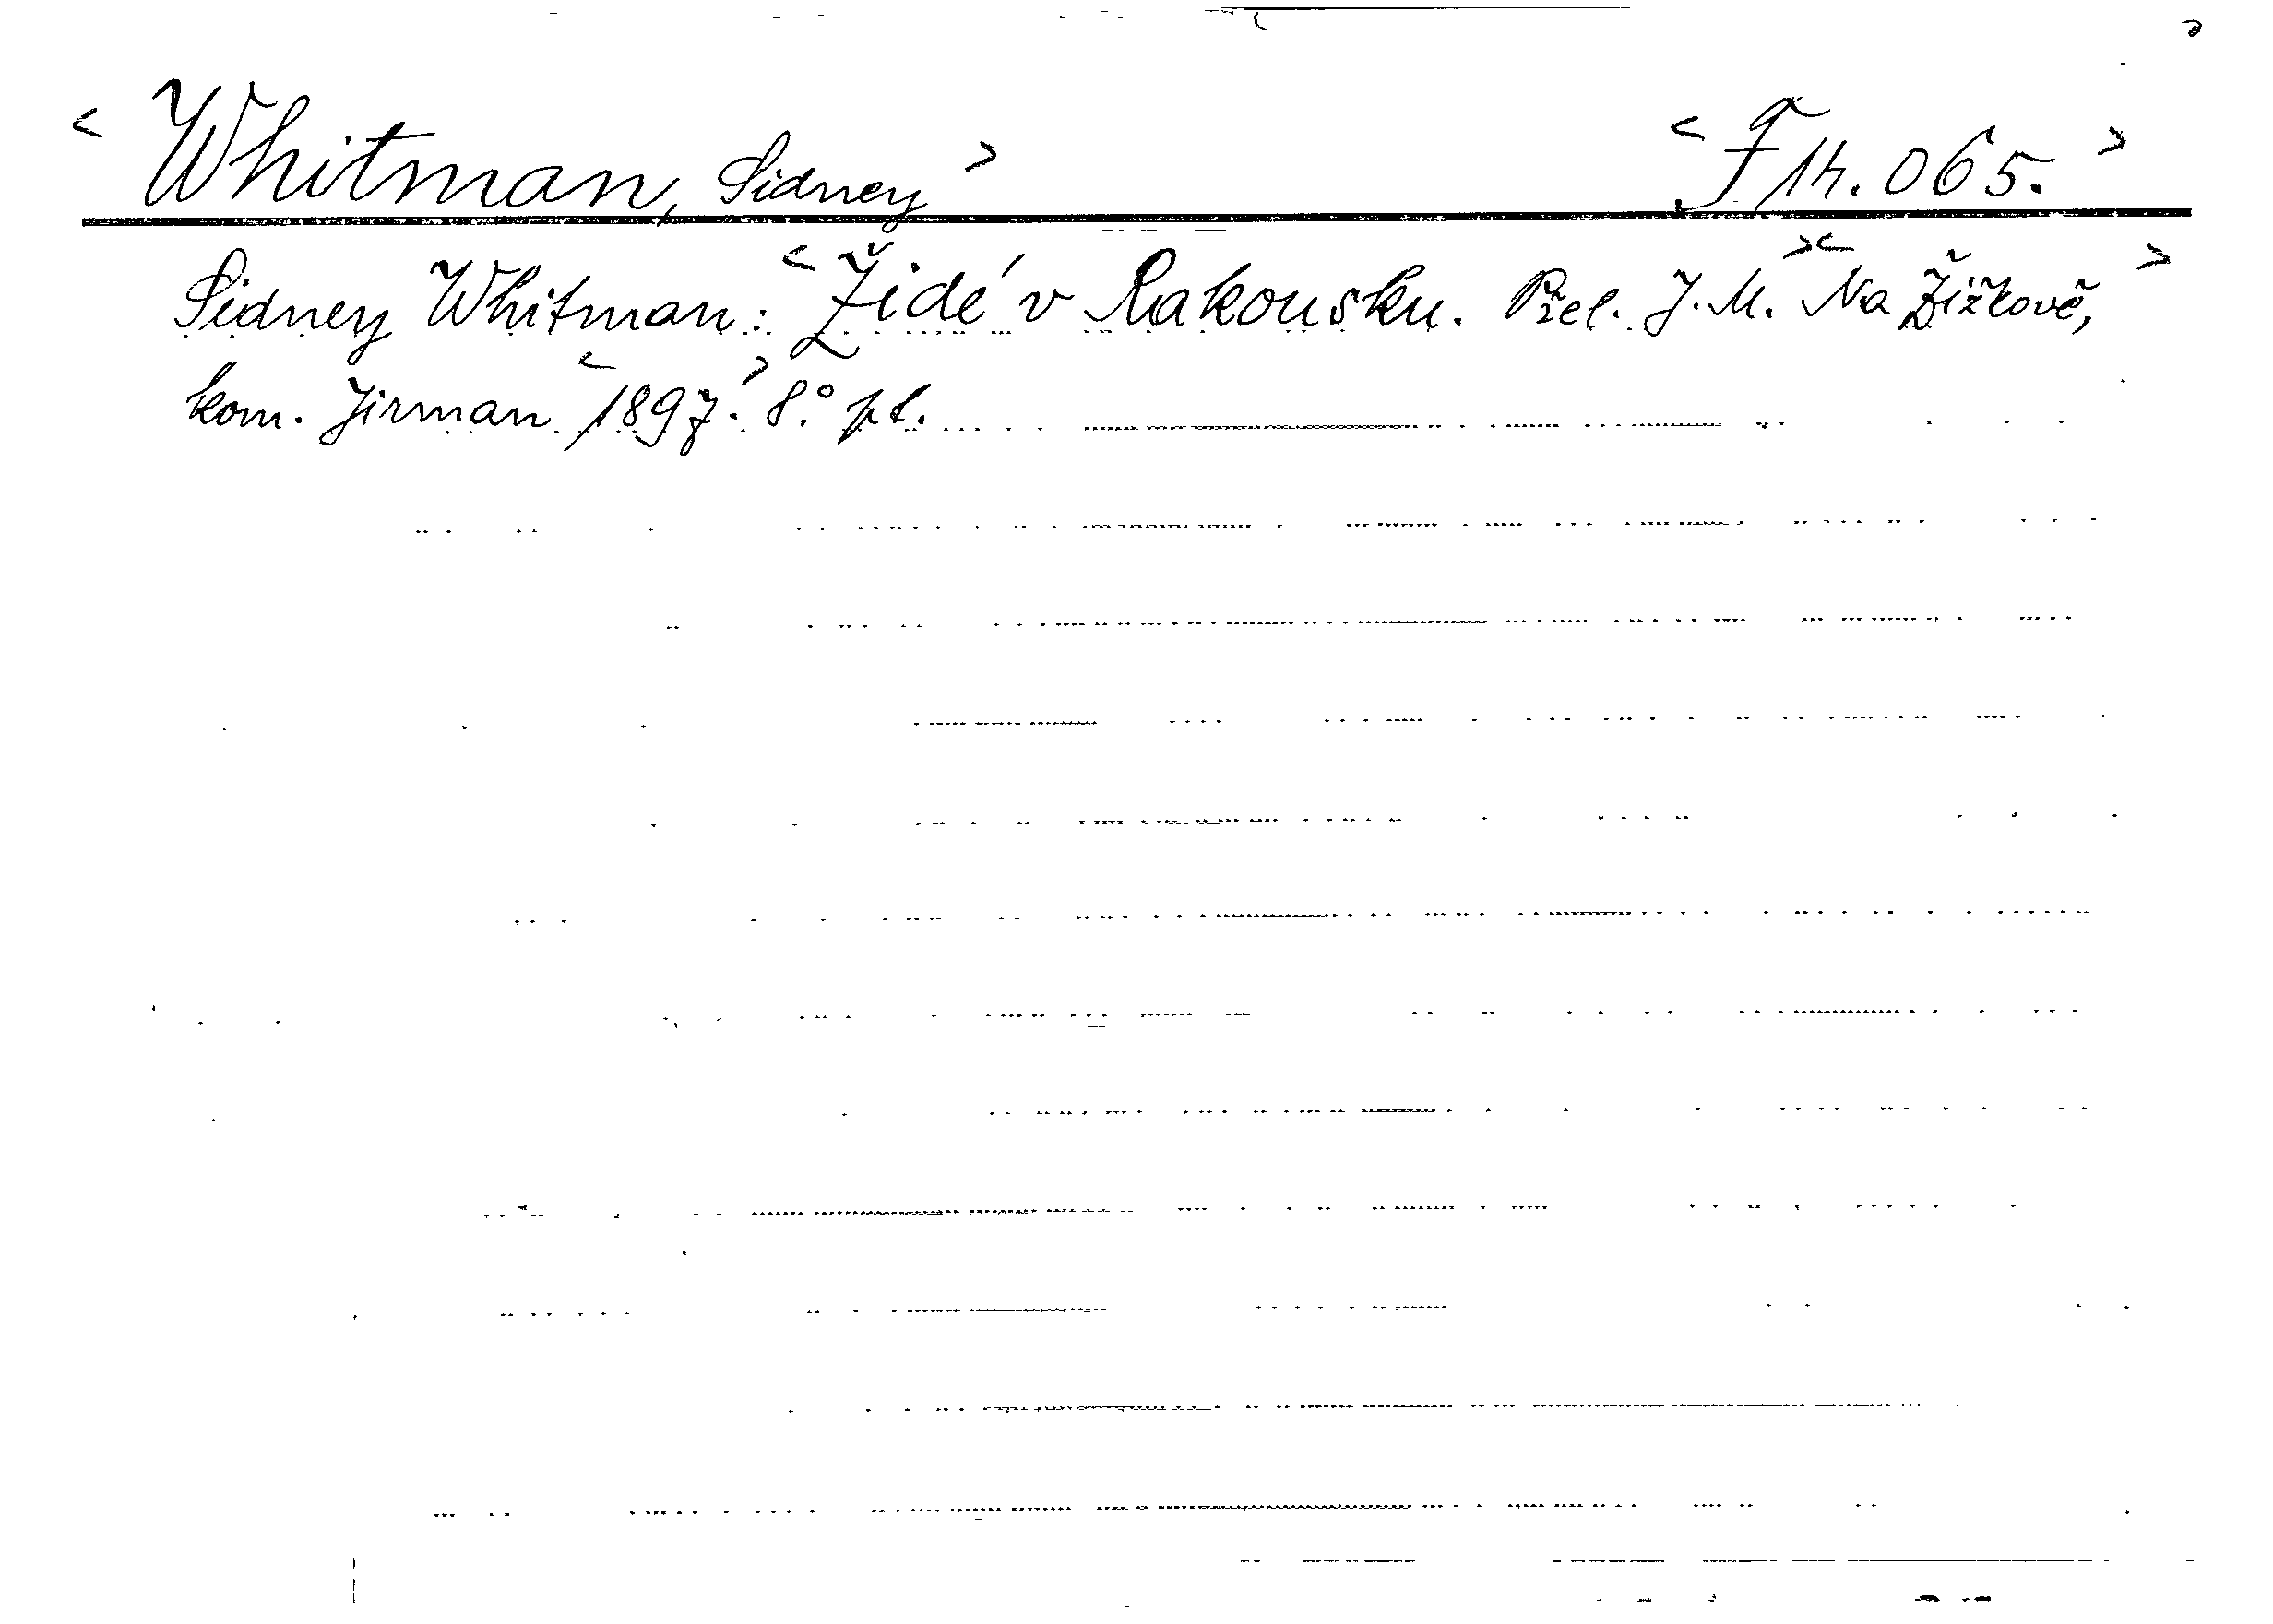 < Whitman, Sidney > < F 14.065. >
Sidney Whitman: < Židé v Rakousku. Přel. J. M. >< Na Žižkově, >
kom. Jirman < 1897. > 8.° pt.